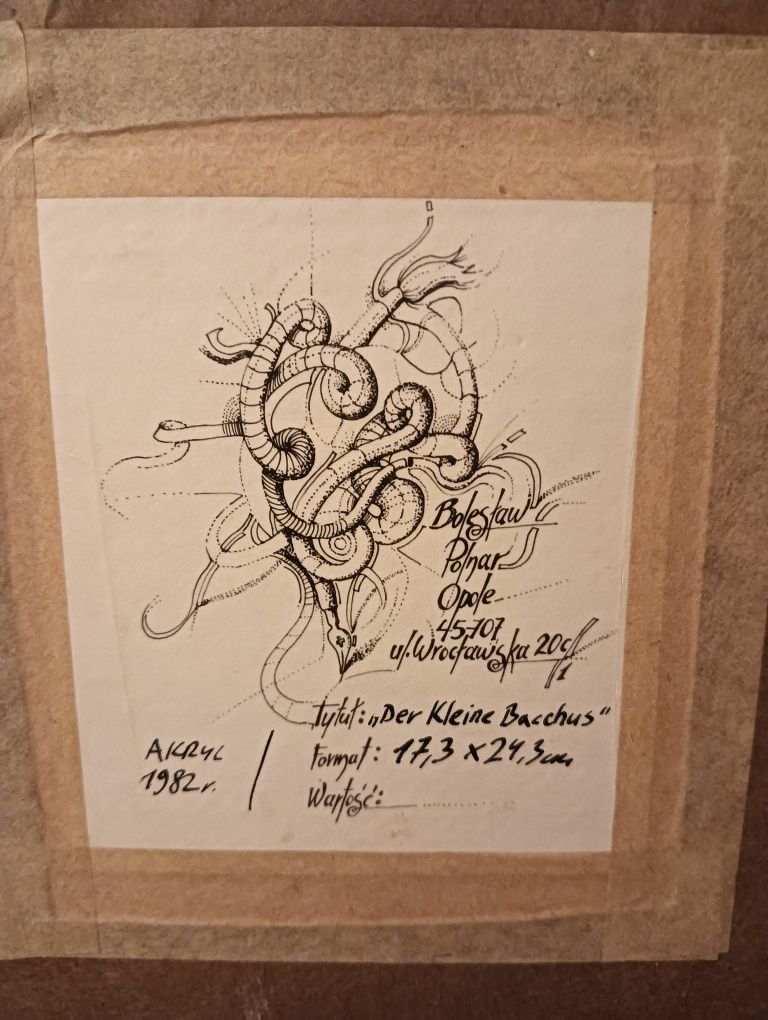 Bolesław
Polnar
Opole
45-707
ul. Wrocławska 20c/1
Tytuł: „Der Kleine Bacchus"
Format: 17,3 x 24,3 cm
Wartość:
AKRYL
1982 r.